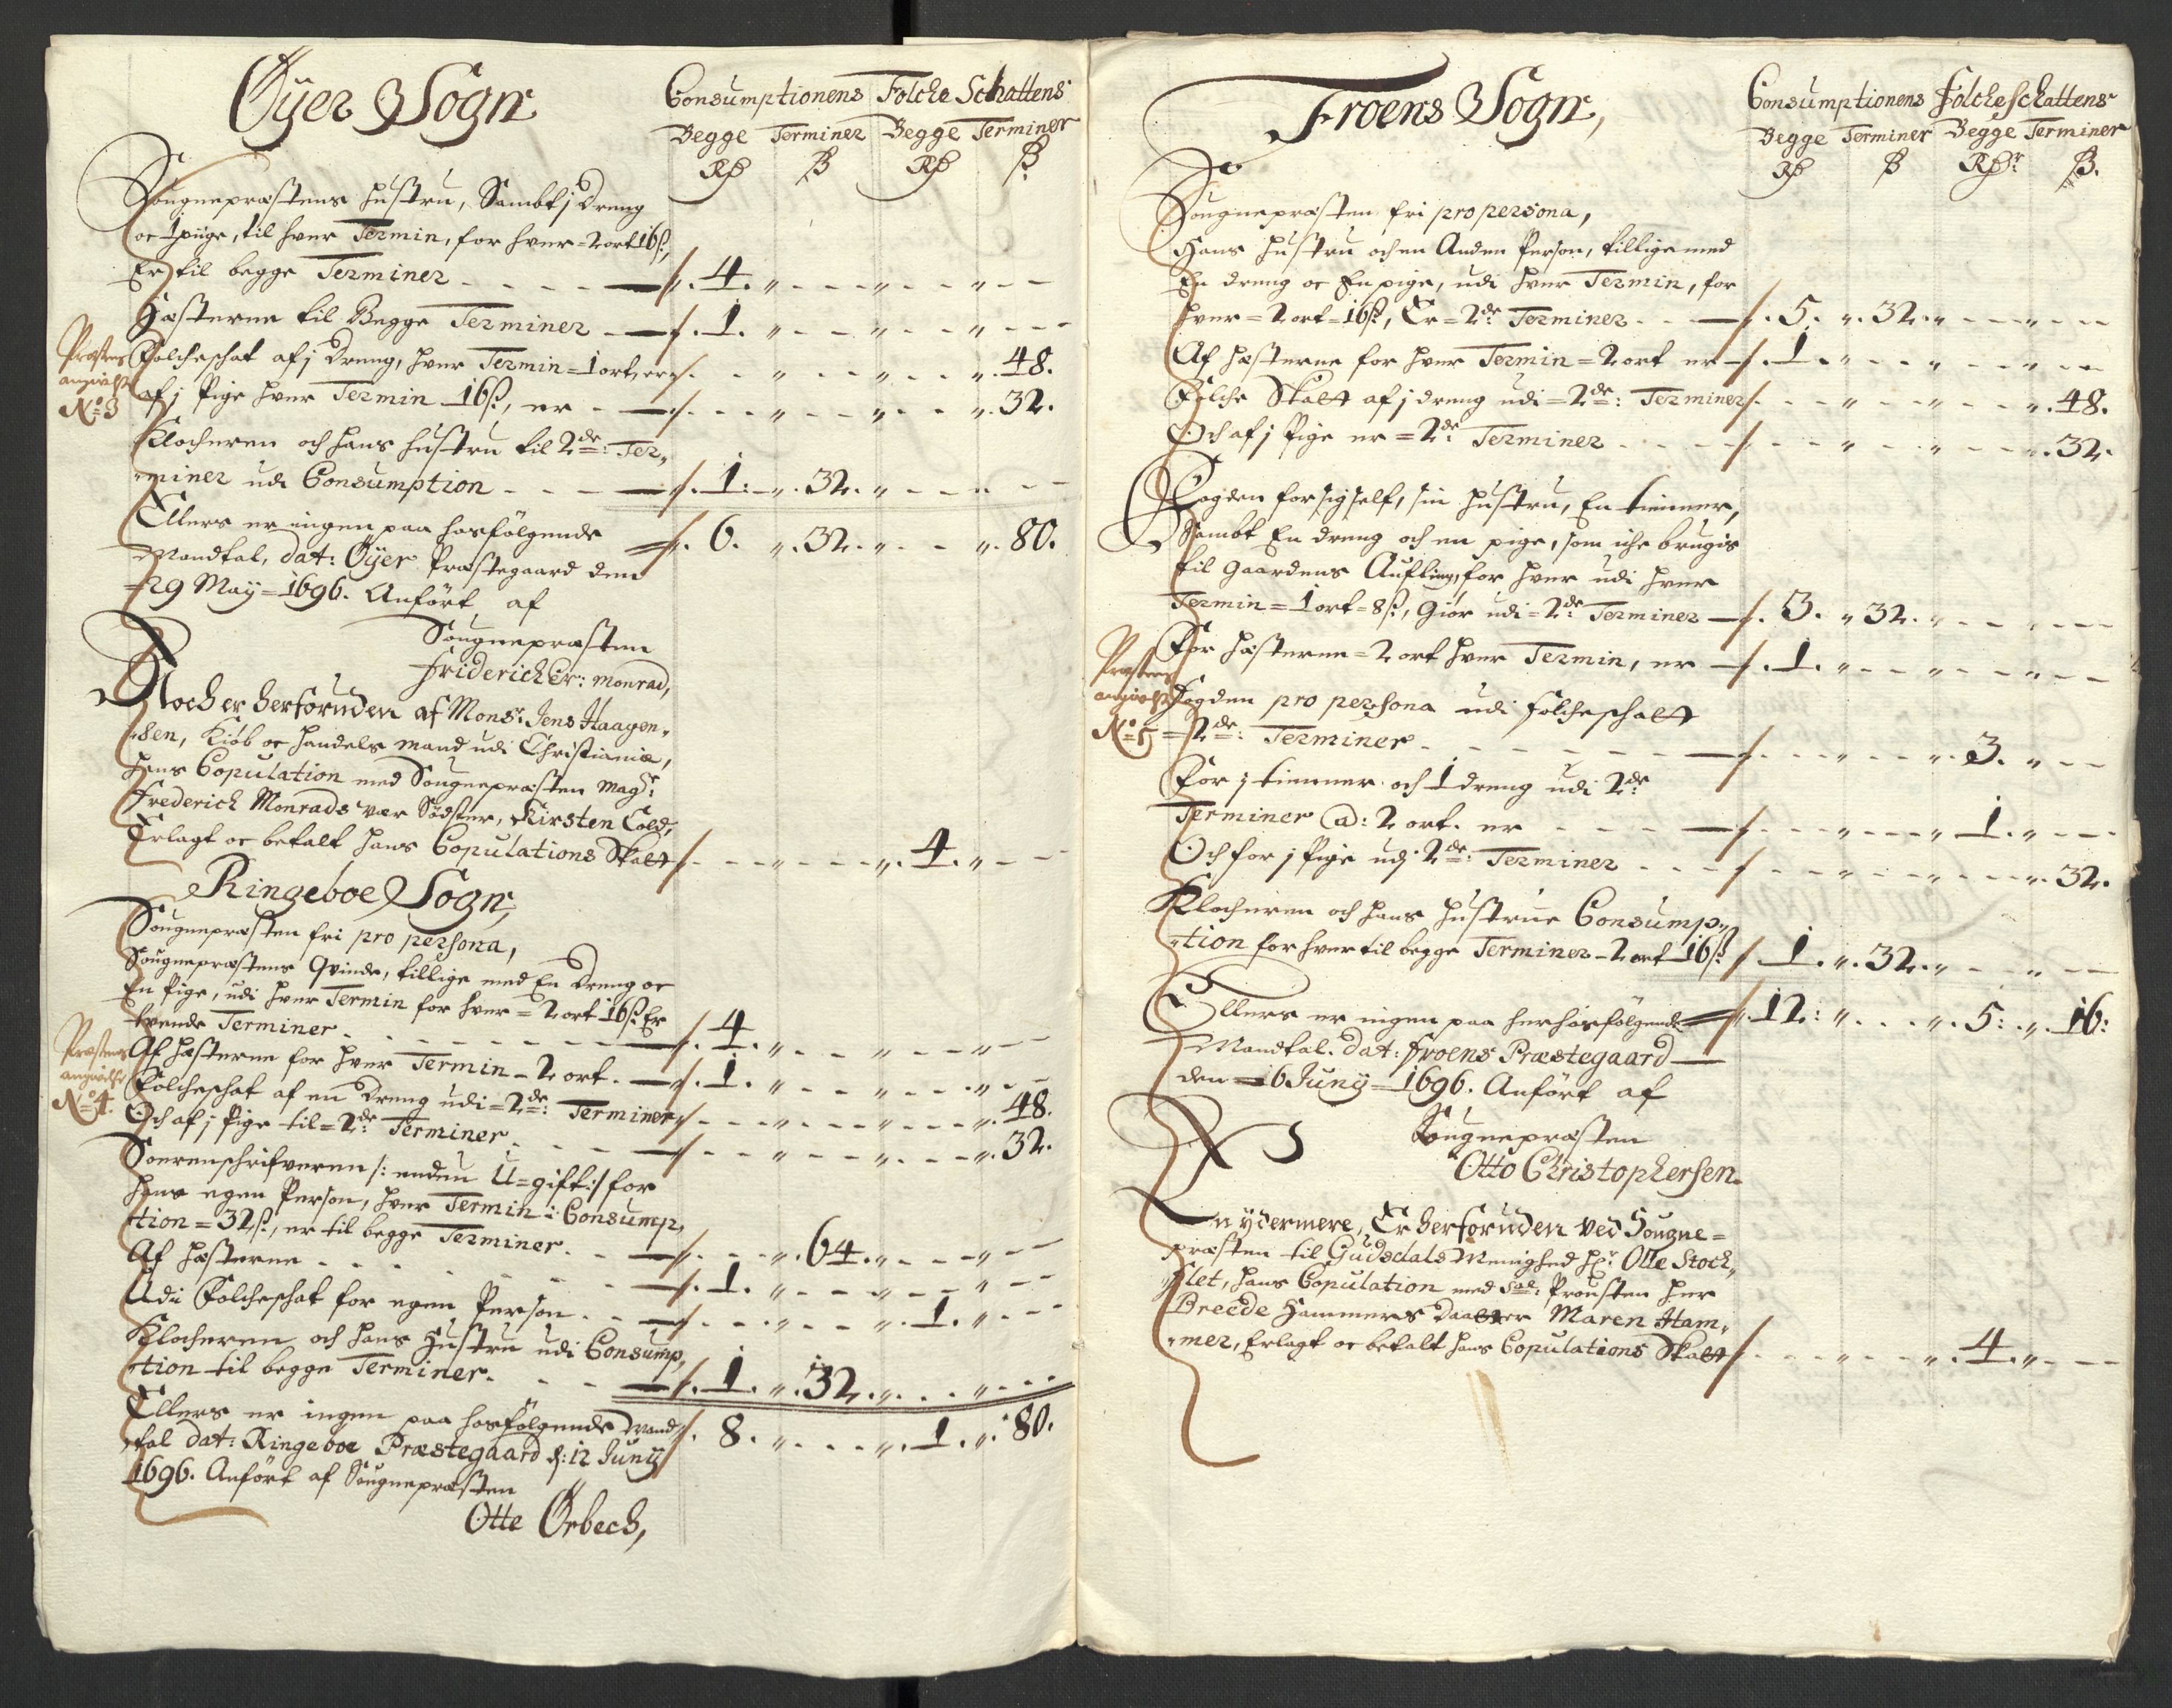 Øÿer Sogn
Consumptionens Folche Schattens
Begge Terminer Begge Terminer
Rd ß Rd ß
Sougnepræstens Hustru, Sambt j Dreng
oc 1 piige, til hver Termin, for hver = 2 ort 16 ß,
Er til begge Terminer - - - - 4. „ - - - „ - - „ - -
Hæsterne til Begge Terminer - 1. „ - - „ - - „ - - -
Præstens angivelse No 3
Folcheschat af j Dreng, hver Termin = 1 ort, er - - „ - - „ - - „. 48.
af j Pige hver Termin 16 ß, er - - - - „ - - „ - - „. 32.
Klocheren och hans hustru til 2de: Ter„
„miner udi Consumption - - - 1: „. 32. „ - - „ - -
Ellers er ingen paa hosfölgende 6. „. 32. „ - - „. 80.
Mandtal, dat: Øÿer Præstegaard den
29 Maÿ = 1696. Anfört af
Sougnepræsten
Friderich Chr: Monrad,
Noch er herforuden af Monsr: Jens Haagen„
„sen, Kiöb oc handels mand udi Christiania,
hans Copulation med Sougnepræsten Magr:
Frederich Monrads vær Södster, Kirsten Cold,
Erlagt oc betalt hans Copulations Skatt - - „ - - „. 4. „ - -
Ringeboe Sogn,
Sougnepræsten fri pro persona,
Sougnepræstens Qvinde, tillige med En Dreng oc
En Pige, udi hver Termin for hver = 2 ort 16 ß. Er
tvende Terminer - - - - - - 4. „ - - „ - - „ - -
Præstens angivelse No 4.
Af Hæsterne for hver Termin - 2 ort. - 1. „ - - „ - - „ - -
Folcheschat af en Dreng udi = 2de: Terminer - - „ - - „ - - „. 48.
Och af j Pige til = 2de: Terminer - - - - „ - - „ - - „. 32.
Sorenschrifveren /: enden U=gift :/ for
hans egen Person, hver Termin i Consump„
„tion = 32 ß, er til begge Terminer. - - - „. 64. „ - - „ - -
Af Hæsterne - - - - - 1. „ - - „ - - „ - -
Udi Folcheschat for egen Person - - - - „ - - „. 1. „ - -
Klocheren och hans Hustru udi Consump„
„tion til begge Terminer. - - - 1. „. 32. „ - - „ - -
Ellers er ingen paa hosfölgende Mand„ 8. „ - - „. 1. „. 80.
„tal dat: Ringeboe Præstegaard d: 12 Junÿ
1696. Anfört af Sougnepræsten
Otte Ørbech,
Froens Sogn,
Consumptionens Folcheschattens
Begge Terminer Begge Terminer
Rd ß Rdr ß.
Sougnepræsten fri pro persona,
Hans Hustru och en Anden Person, tillige med
En dreng oc En pige, udi hver Termin, for
hver = 2 ort = 16 ß, Er = 2de: Terminer - - 5. „. 32. „ - - „ - -
Af hæsterne for hver Termin = 2 ort er 1. „ - - „ - - „ - -
Folche Skatt af j dreng udi = 2de: Terminer - - „ - - „ - - „. 48.
Och af j Pige er = 2de: Terminer - - - - „ - - „ - - „. 32.
Fogden for sig self, sin Hustru, En tienner,
Sambt En dreng och en pige, som iche brugis
til Gaardens Aufling, for hver udi hver
Termin = 1 ort = 8 ß, Giör udi = 2de: Terminer 3. „ 32. „ - - - -
For hæsterne = 2 ort hver Termin, er 1. „ - - „ - - „ - -
Præstens angivelse No 5
Fogden pro persona udi Folcheschatt
= 2de: Terminer - - - - - - - „ - - „. 3. „ - -
For j tienner och 1 dreng udi 2de
Terminer @: 2 ort. er - - - - „ - - „ 1. „ - -
Och for j Pige udj 2de: Terminer - - - - „ - - „ - - „. 32.
Klocheren och hans Hustrue Consump„
„tion for hver til begge Terminer - 2 ort 16 ß 1. „. 32. „ - - „ - -
Ellers er ingen paa herhosfölgende 12: „. - - „. 5: „. 16:
Mandtal. dat: Froens Præstegaard
den = 6 Junÿ = 1696. Anfört af
Sougnepræsten
Otto Christophersen.
En ydermere, Er herforuden ved Sougne=
præsten til Gudsdals Menighed Hr: Olle Stoch„
„flet, hans Copulation med Sal: Prousten Her
Breede Hammers Daatter Maren Ham„
„mer, Erlagt oc betalt hans Copulations Skatt - - „ - - „. 4. „ - -